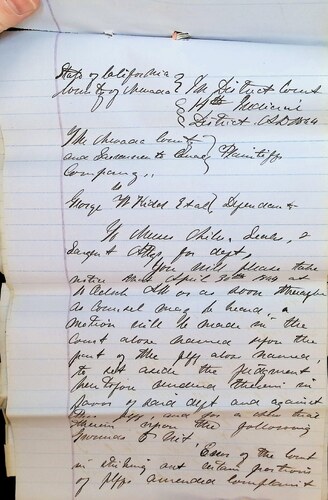 State of California } In District Court
County of Nevada } 14th Judicial
District.
The Nevada County }
and Sacramento Canal } Plaintiffs
Company,,
vs
George W Kidd Et al } Defendants
To Messrs
Sargent Attys for deft,
You will please take
notice that April 30th at
10 Oclock AM or as soon thereafter
as counsel may be heard, a
motion will be made in the
Court above named upon the
part of the plff above named,
to set aside the judgment
heretofore rendered therein in
favor of said deft and against
this plff, and for a new trial
therein upon the following
grounds to wit,
Error of the Court
in striking out certain portions
of plffs amended complaint